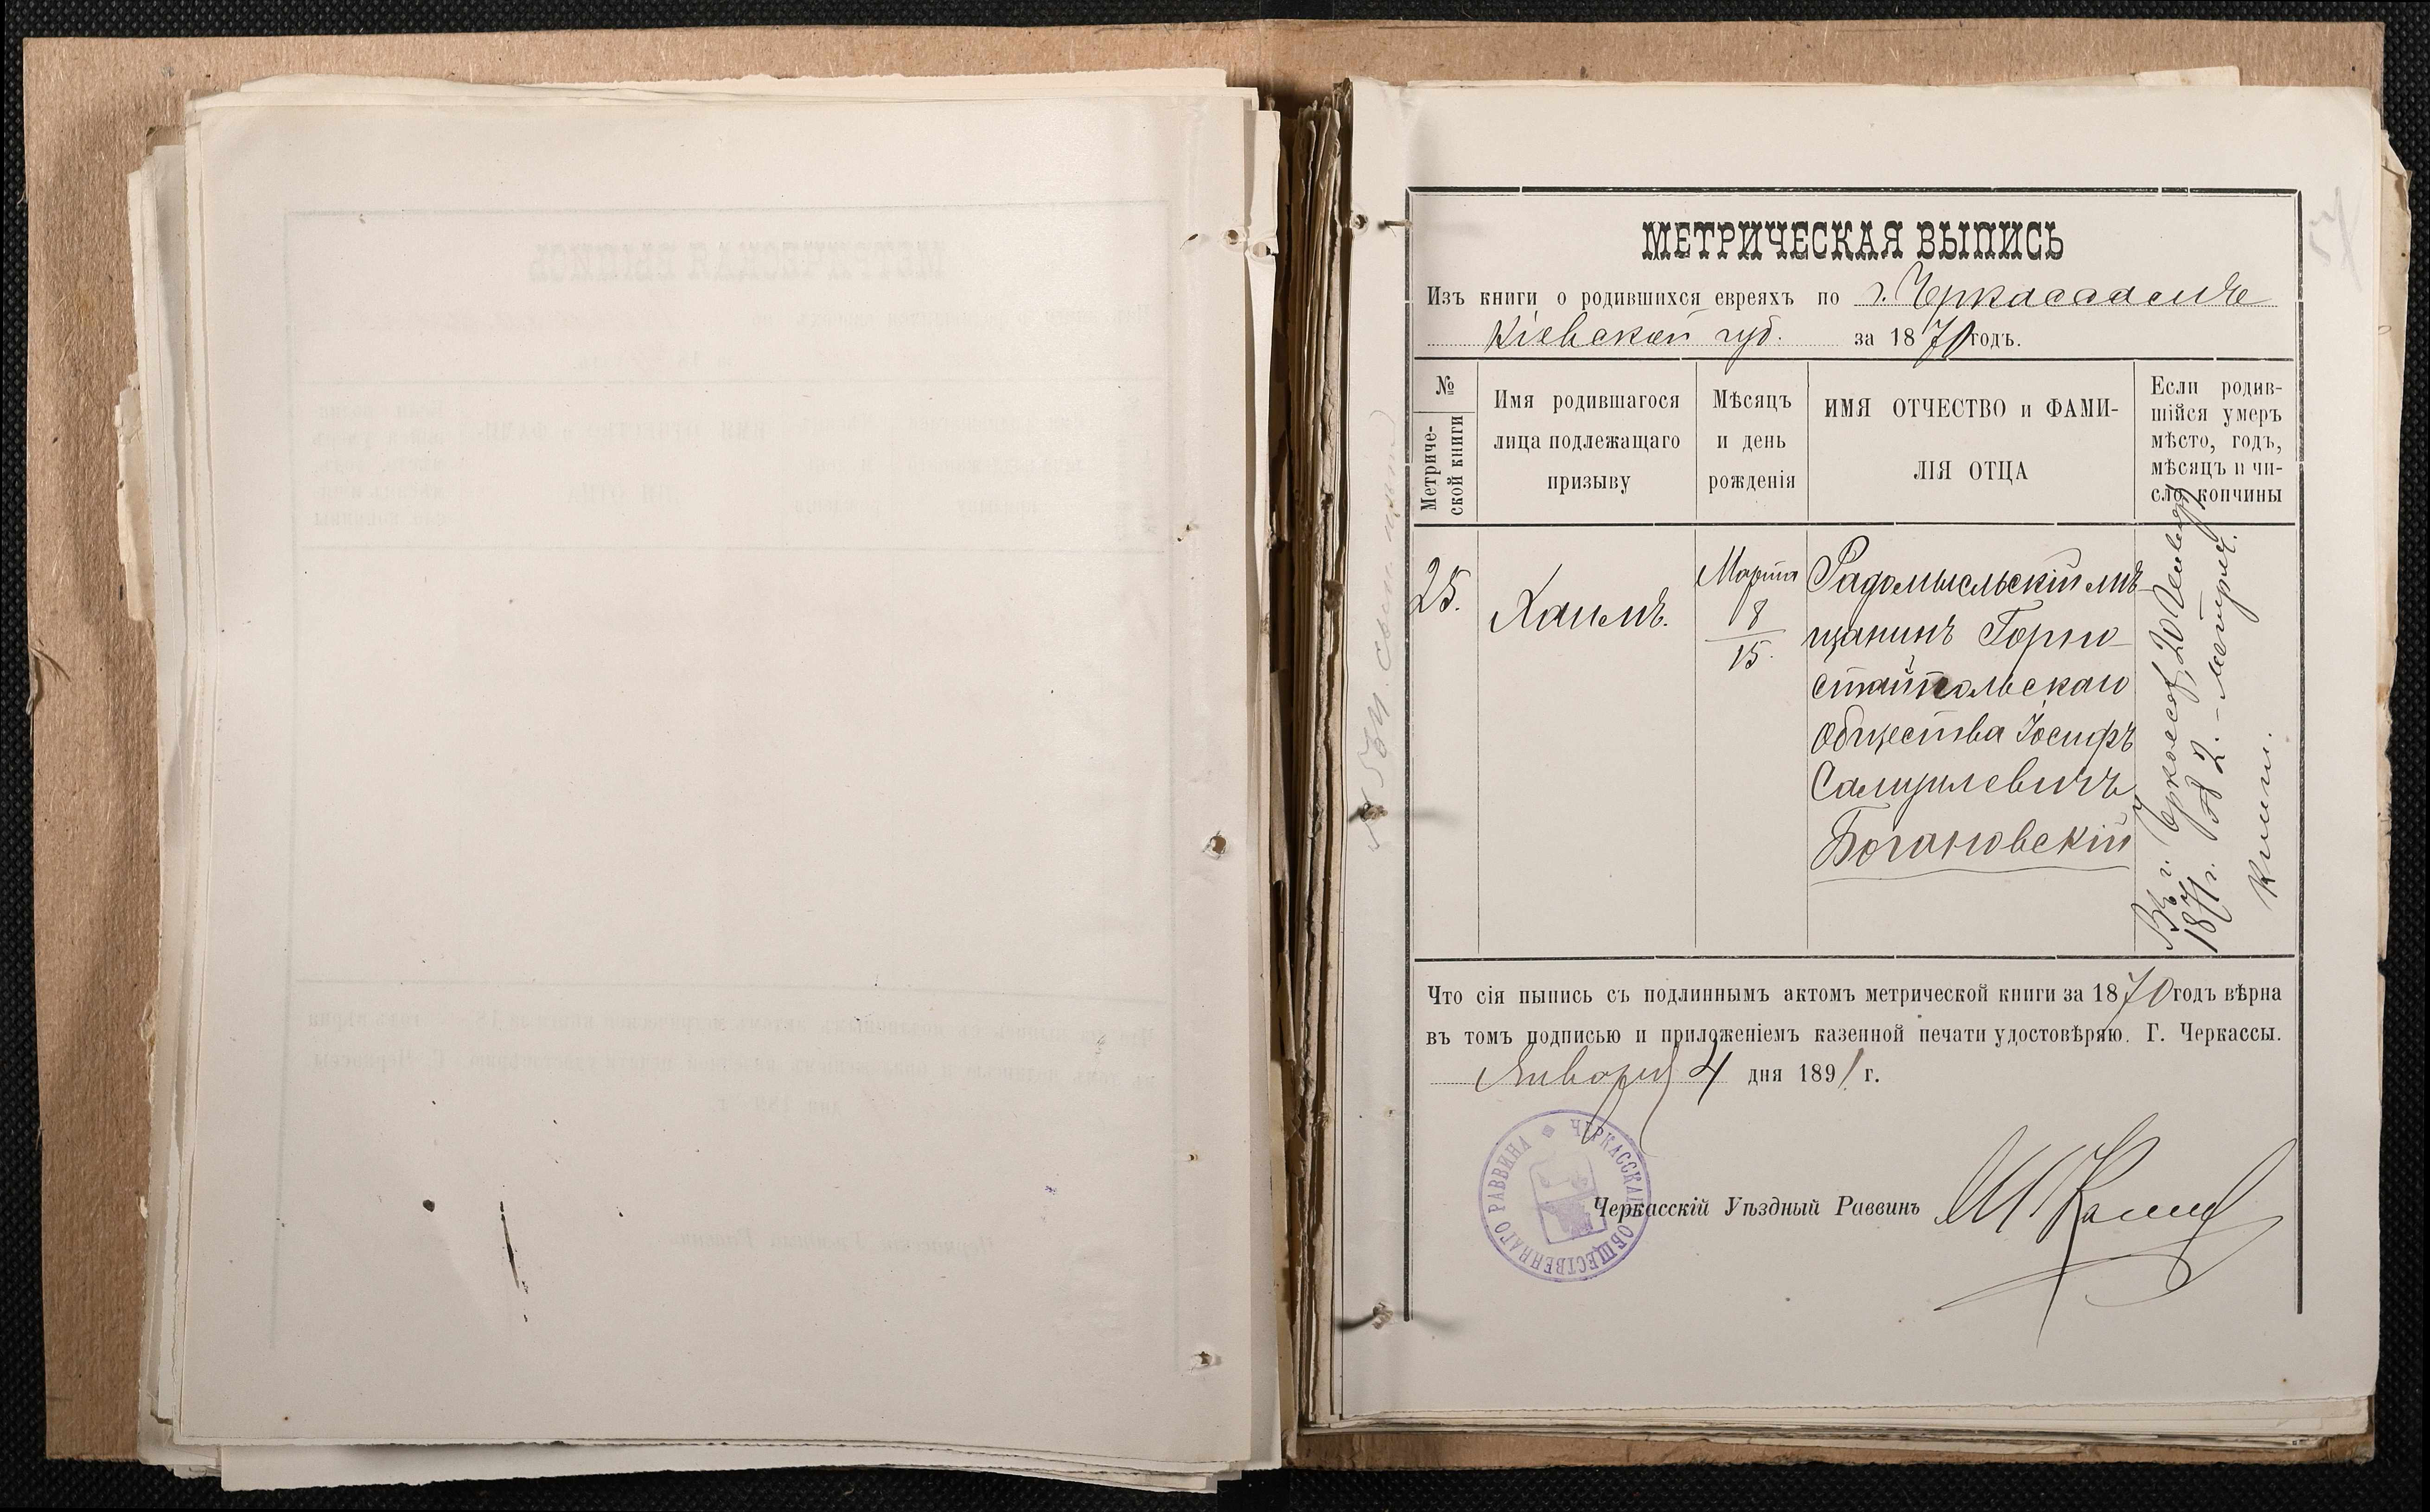 МЕТРИЧЕСКАЯ ВЫПИСЬ
Изъ книги о родившихся евреяхъ по г. Черкассамъ
Кіевской губ. за 1870 годъ.
№
Метриче-
ской книги
Имя родившагося
лица подлежащаго
призыву
Мѣсяцъ
и день
рожденія
ИМЯ ОТЧЕСТВО и ФАМИ-
ЛІЯ ОТЦА
Если родив-
шійся умеръ
мѣсто, годъ,
мѣсяцъ и чи-
сло кончины
25.
Хаимъ.
Марта
8
15.
Радомысльскій мѣ-
щанинъ Горно-
стайпольскаго
общества Іосифъ
Самуилевичъ
Богановскій
Въ г. Черкассѣ, 20 Января
1871 г. № 2. - метрич.
книги.
Что сія выпись съ подлиннымъ актомъ метрической книги за 1870 годъ вѣрна
въ томъ подписью и приложеніемъ казенной печати удостовѣряю. Г. Черкассы.
Января 4 дня 1891 г.
ЧЕРКАССКАГО ОБЩЕСТВЕННАГО РАВВИНА
Черкасскій Уѣздный Раввинъ